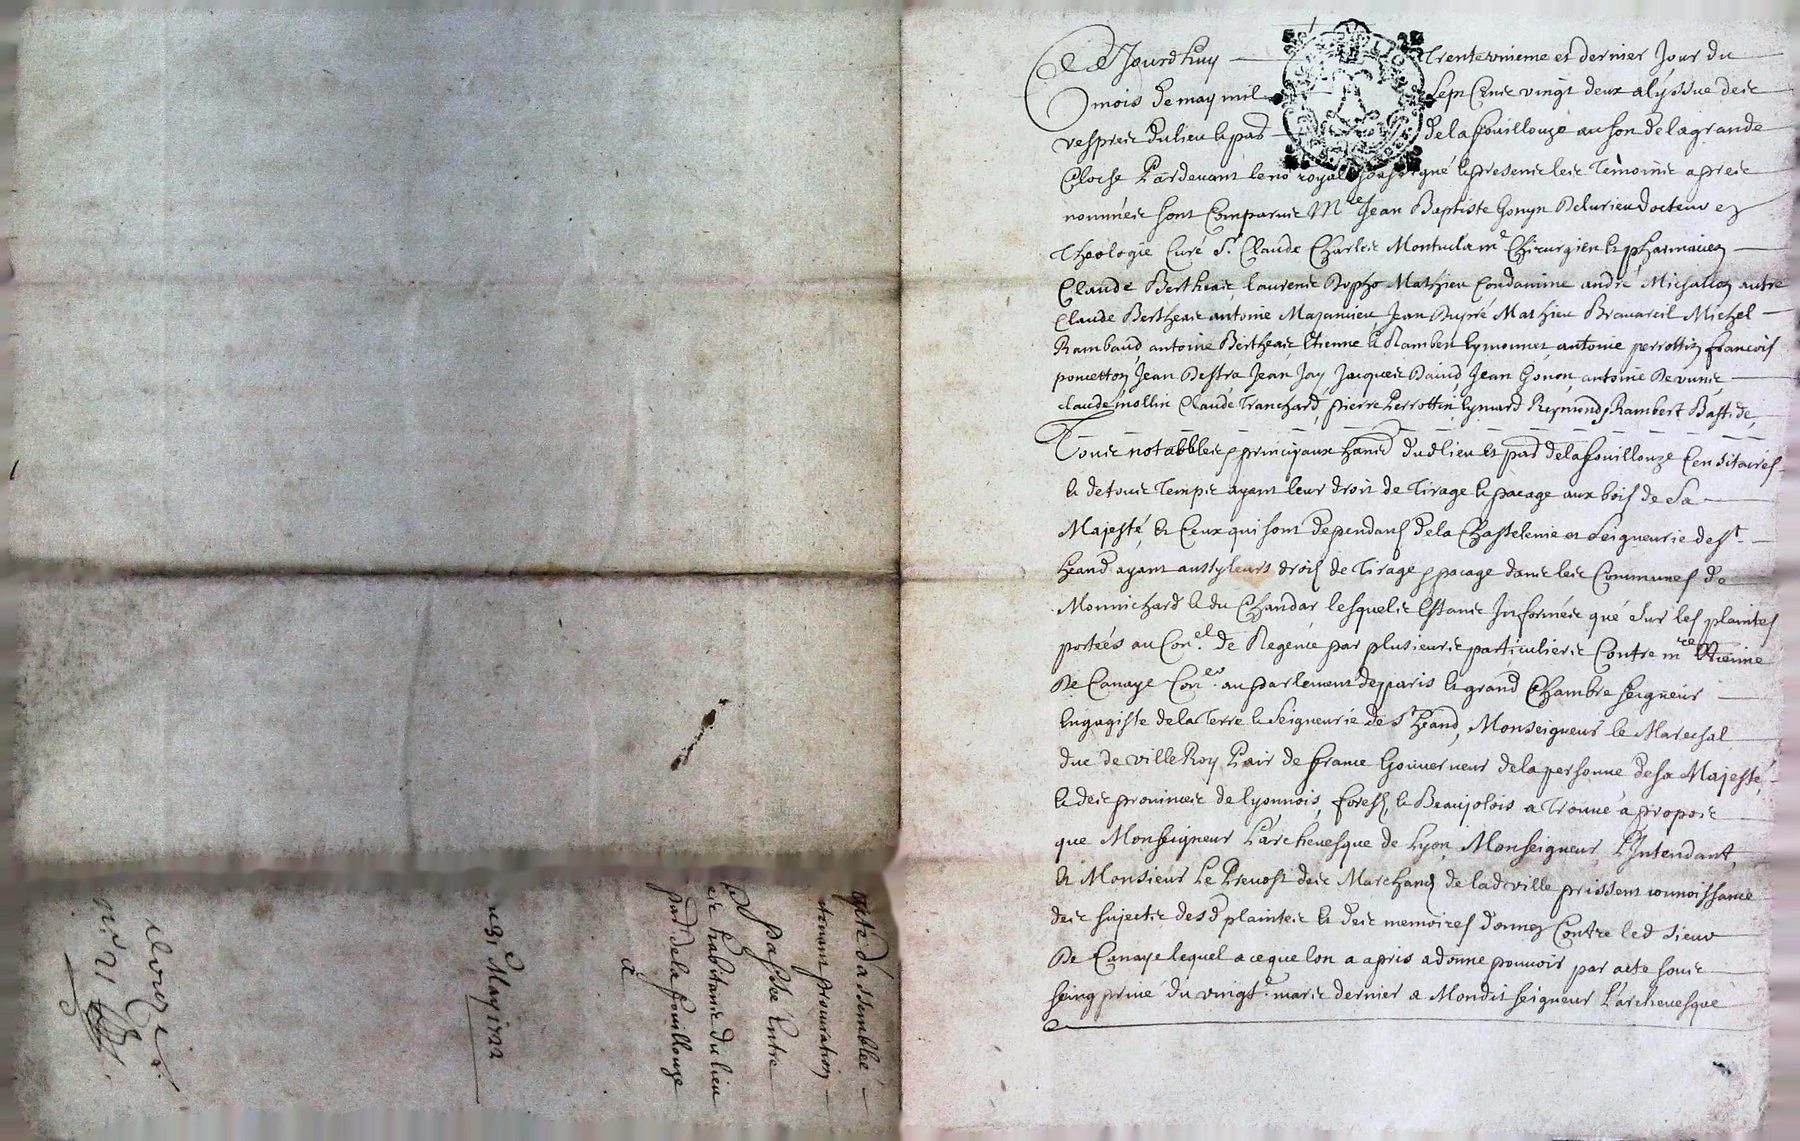 Acte dassemblée
tenant procuration
passée Entre
Lec habitanc du lieu
par.d de la fouillouze
a
Du 31 May 1722
n° 21
Ce Jourdhuy trentevnieme et dernier Jour du
mois de may mil sept Cenc vingt deux a lyssüe dec
vesprec du lieu & par de la fouillouze au son de la grande
Cloche Pardevant le no.re royal soussigné & presenc lec Temoinc aprec
nomméec sont Comparuc M.re Jean Baptiste Gonyn Delurieu docteur en
Theologie Curé S.r Claude Charlec Montucla m.e Chirurgien & pharmacien
Claude Bertheac laurenc Dupho Mathieu Condamine andré Michallon autre
Claude Bertheac antoine Mazanieu Jean Dupré Mathieu Bravareil Michel
Rambaud, antoine Bertheac, Etienne & Rambert Eymonnet, antoine perrottin francois
poncetton Jean Destra Jean Jay Jacquec David Jean Gonon, antoine Devunc,
claude mollin Claude Tranchard, pierre Perrottin, Eymard Reymond, Rambert Bastide,
Touc notabblec & principaux hanc dud lieu & par de la fouillouze Censitaires
& de touc Tempc ayant leur droit de Tirage & pacage aux bois de Sa
Majesté, & Ceux qui sont dependans de la Chastelenie et Seigneurie de S.t
heand ayant aussy leurs drois de Tirage & pacage danc lec Communes de
Monnichard & du Chandar lesquelc Estanc Informéec qué Sur les plaintes
portéés au Con.el de Regence par plusieurc particulierc Contre m.re Etienne
De Canaye Con.er au parlement de paris & grand Chambre seigneur
Engagiste de la Terre & Seigneurie de S.t heand, Monseigneur le Marechal
duc de ville Roy Pair de france Gouverneur de la personne de sa Majesté,
& dec provincec de lyonnois, forests, & Beaujolois a Trouvé a propoc
que Monseigneur Larchevesque de Lyon, Monseigneur L'Intendant,
& Monsieur Le Prevost dec Marchands de lad. ville prissent connoissance
dec sujectc desd plaintec & dec memoires donnez Contre led sieur
De Canaye lequel a ce que lon a apris a donné pouvoir par acte souc
seing privé du vingt.e marc dernier a Mondit seigneur Larchevesque